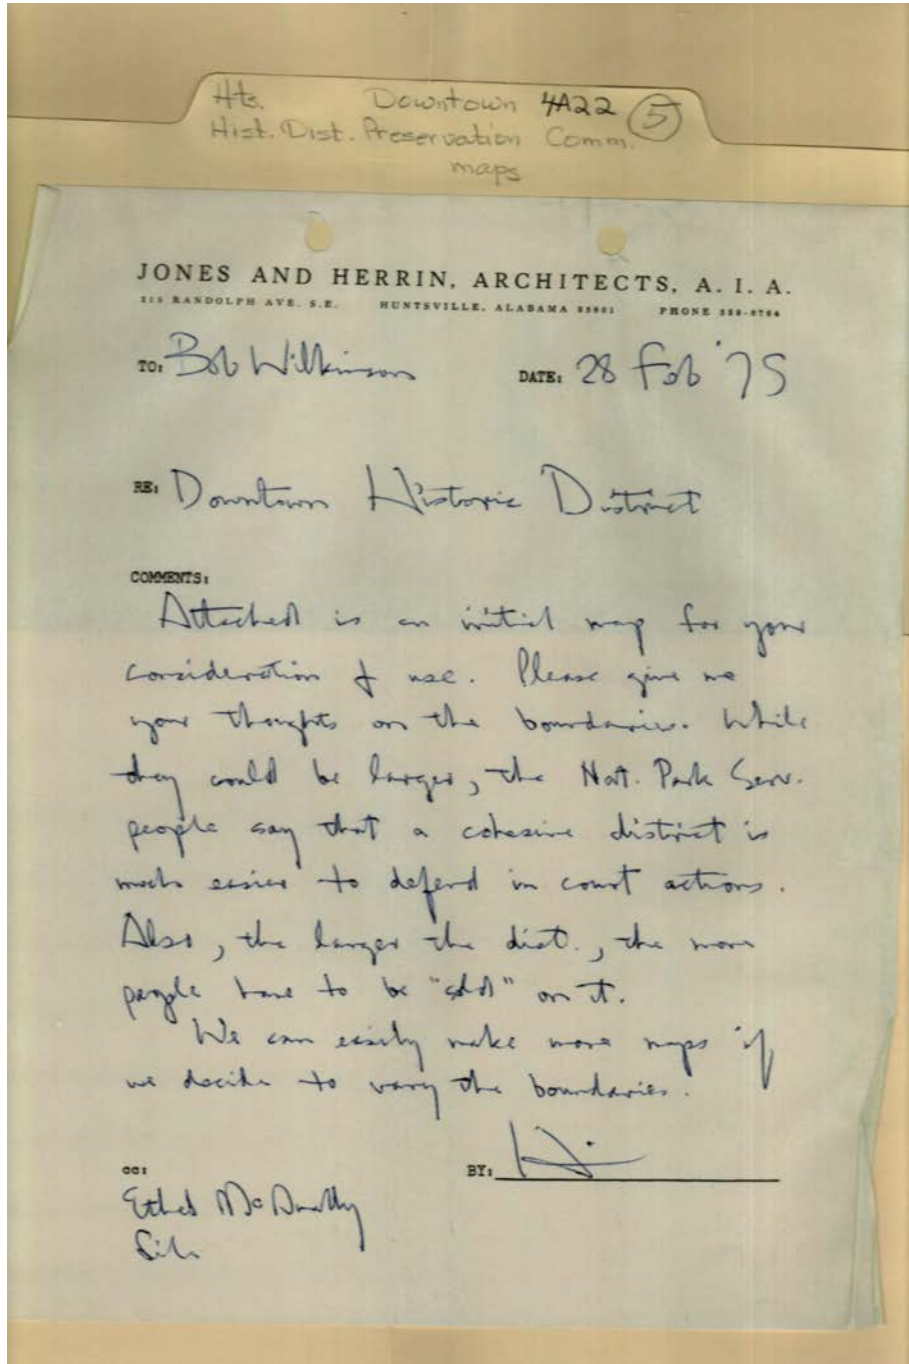 Hts. Downtown 4A22 5
Hist. Dist. Preservation Comm.
maps
JONES AND HERRIN, ARCHITECTS, A. I. A.
RANDOLPH AVE. S.E. HUNTSVILLE, ALABAMA PHONE
TO: Bob Wilkinson DATE: 28 Feb '75
RE: Downtown Historic District
COMMENTS:
Attached is an initial map for your
consideration & use. Please give me
your thoughts on the boundaries. While
they could be larger, the Nat. Park Serv.
people say that a cohesive district is
much easier to defend in court actions.
Also, the larger the dist., the more
people have to be "sold" on it.
We can easily make more maps if
we decide to vary the boundaries.
CC: BY:
Ethel
File